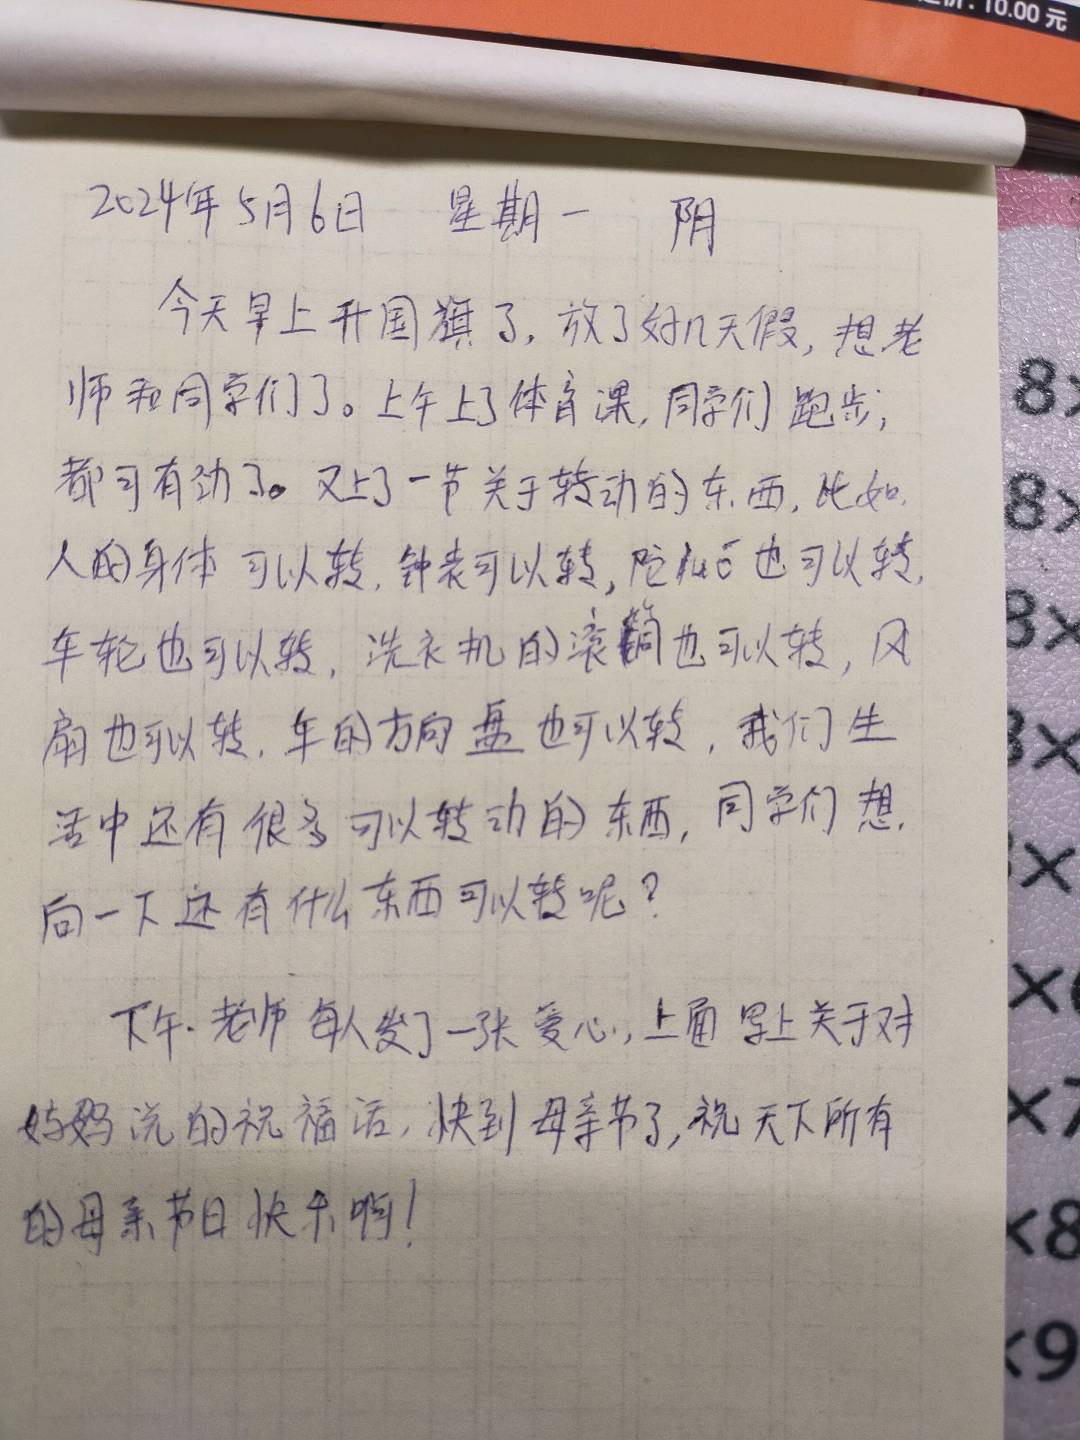 定价:10.00元
2024年5月6日 星期一 阴
今天早上升国旗了,放了好几天假,想老
师和同学们了。上午上了体育课,同学们跑步,
都可有劲了。又上了一节关于转动的东西,比如,
人的身体可以转,钟表可以转,陀luó也可以转,
车轮也可以转,洗衣机的滚筒也可以转,风
扇也可以转,车的方向盘也可以转,我们生
活中还有很多可以转动的东西,同学们想,
向一下还有什么东西可以转呢?
下午.老师每人发了一张爱心,上面写上关于对
妈妈说的祝福话,快到母亲节了,祝天下所有
的母亲节日快乐啊!
8×
8×
8×
8×
8×
×6
×7
×8
×9